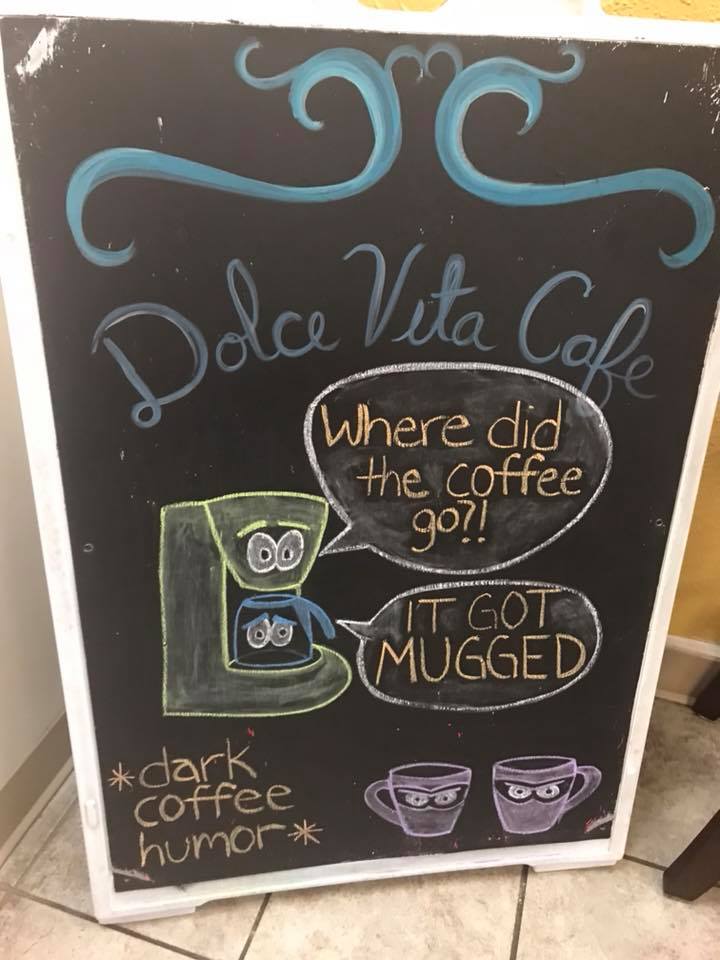 Dolce Vita Cafe
Where did
the coffee
go?!
IT GOT
MUGGED
*dark
coffee
humor*